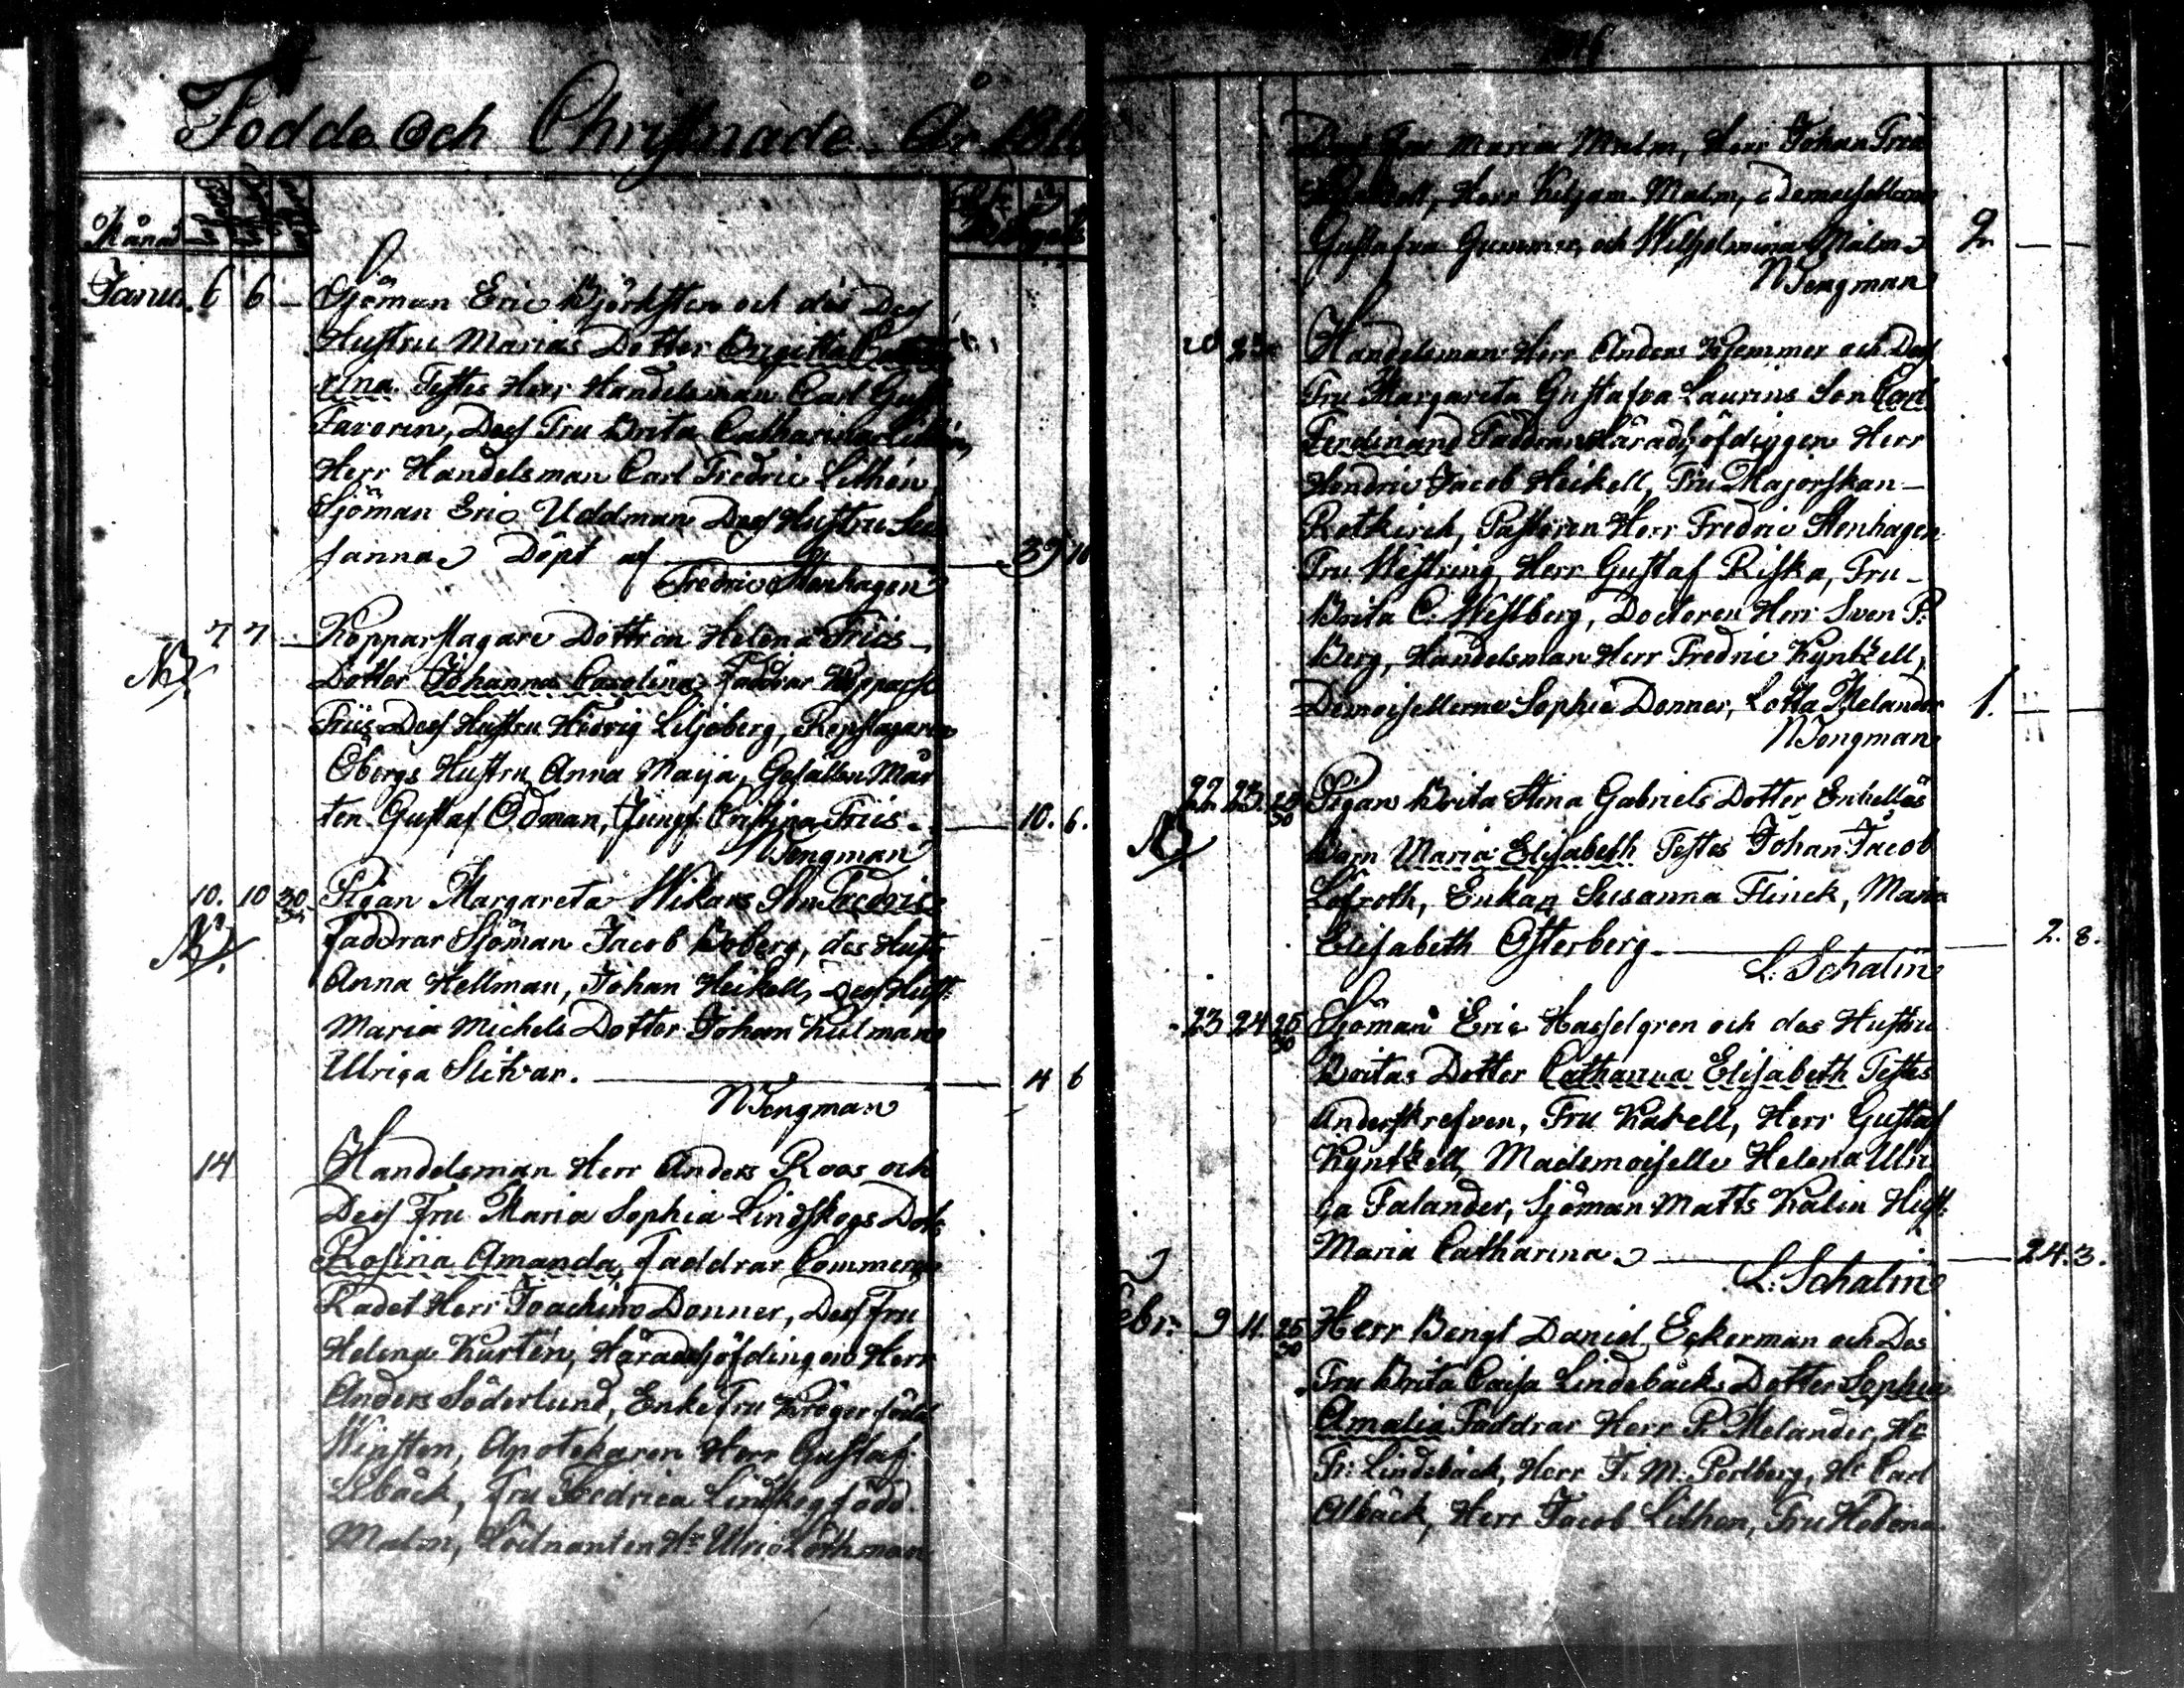 Födde och Christnade År 1816
Månd
Janua. 6 6 — Sjöman Eric Björksten och des Dess
Hustru Marias Dotter Brigitta Catha
rina. Testes Herr Handelsman Carl Gust
Favorin, Dess Fru Brita Catharina Lithén,
Herr Handelsman Carl Fredric Lithén,
Sjöman Eric Uddman Dess Hustru Su
sanna Döpt af — 39 16
Fredric Stenhagen
7 7 — Kopparslagare Dottren Helena Friis
NB. Dotter Johanna Carolina, Faddrar Kopparsl
Friis Dess Hustru Hedvig Liljeberg, Repslagaren
Öbergs Hustru Anna Maija, Gesällen Mår
ten Gustaf Ödman, Jungf. Cristina Friis. — 10. 6.
NTengman
10. 10 30 Pigan Margareta Wikars Son Fredric
NB. faddrar Sjöman Jacob Boberg, des Hust
Anna Hellman, Johan Heikell, Dess Hust:
Maria Michels Dotter Johan Kulman
Ulriga Slitvar. — 4 6
NTengman
14 Handelsman Herr Anders Roos och
Dess Fru Maria Sophia Lindskogs Dott
Rosina Amanda, faddrar Commerce
Radet Herr Joachim Donner, Dess fru
Helena Kurtén, Häradshöfdingen Herr
Anders Söderlund, Enke Fru Kröger född
Winsten, Apotekaren Herr Gustaf
Elbäck, fru Fredrica Lindskog född
Malm, Löitnanten Hr Ulric Löthman
Dess Fru Maria Malm, Herr Johan Fred
Herr Viljam Malm, Demoisellerne
Gustafva Gummer, och Wilhelmina Malm 2. — —
NTengman
20 23 Handelsman Herr Anders Kjemmer och Dess
Fru Margareta Gustafva Laurins Son Carl
Ferdinand Faddrar Häradshöfdingen Herr
Hendric Jacob Heikell, Fru Majorskan —
Rotkirch, Pastoren Herr Fredric Stenhagen
Fru Westring, Herr Gustaf Riska, Fru —
Brita C. Westberg, Doctoren Herr Sven P.
Berg, Handelsman Herr Fredric Kyntzell,
Demoisellerne Sophie Donner, Lotta Melander 1. — —
NTengman
22. 23. 25/30 Pigan Brita Stena Gabriels Dotter Enkellas
NB. Barn Maria Elisabeth Testes Johan Jacob
Löfroth, Enkan Susanna Flinck, Maria
Elisabeth Österberg — 2. 8.
L: Schalin
23 24 25/30 Sjöman Eric Hasselgren och des Hustru
Britas Dotter Catharina Elisabeth Testes
Anders Krefven, Fru Katell, Herr Gustaf
Kyntzell, Mademoiselle Helena Ulri
ca Falander, Sjöman Matts Kalin Hust:
Maria Catharina — 24. 3.
L. Schalin
Febr. 9 11. 25/30 Herr Bengt Daniel Eckerman och Des
Fru Brita Caisa Lindebäcks Dotter Sophia
Amalia Faddrar Herr P. Melander, Hr
Fr. Lindebäck, Herr F. M. Perlberg, Hr Carl
Albäck, Herr Jacob Lithen, Fru Helena